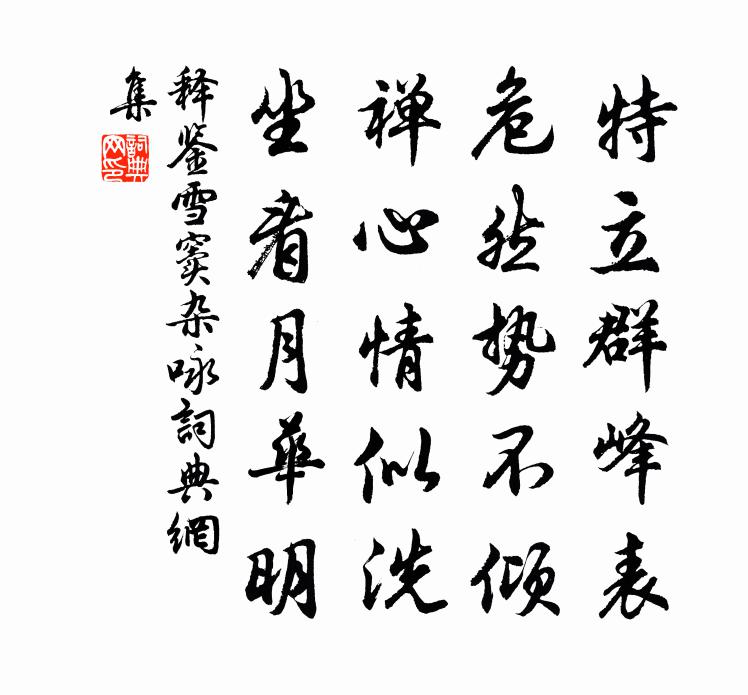 特立群峰表
危然势不倾
禅心情似洗
坐看月華明
释鉴雪窦杂咏詞典網
集
詞典
网印